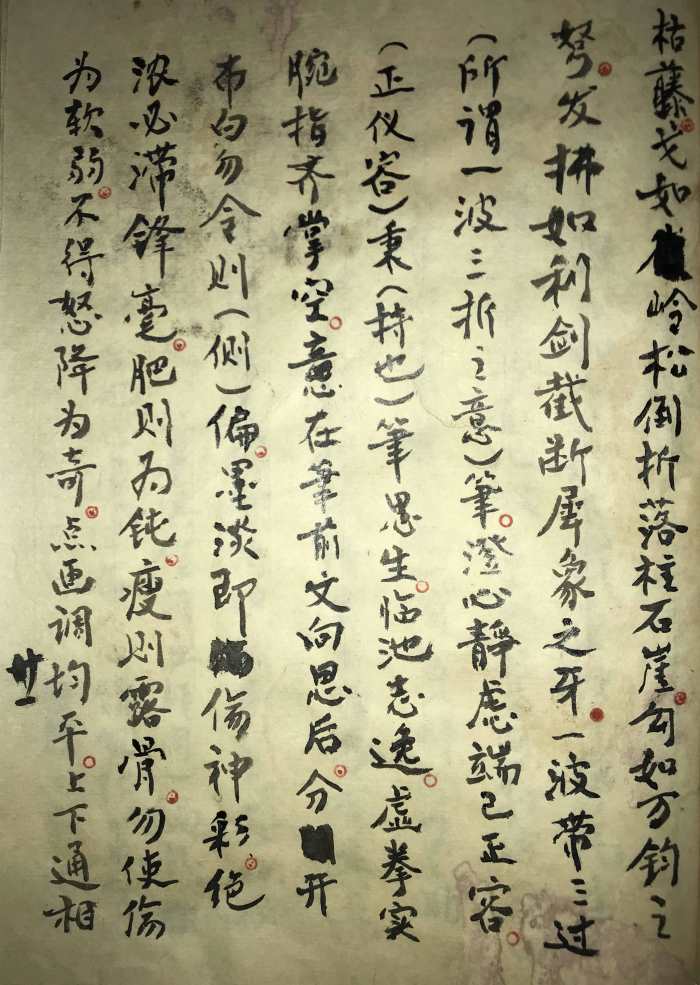 枯藤戈如岭松倒折落柱石崖勾如万钧之
弩发拂如利剑截断犀象之牙一波带三过
(所谓一波三折之意)筆澄心靜虑端己正容
(正仪容)秉(持也)筆思生临池志逸虚拳实
腕指齐掌空意在筆前文向思后分开
布白勿令则(侧)偏墨淡即伤神彩绝
浓必滞鋒毫肥则为钝瘦则露骨勿使伤
为软弱不得怒降为奇点画调均平上下通相
廿一